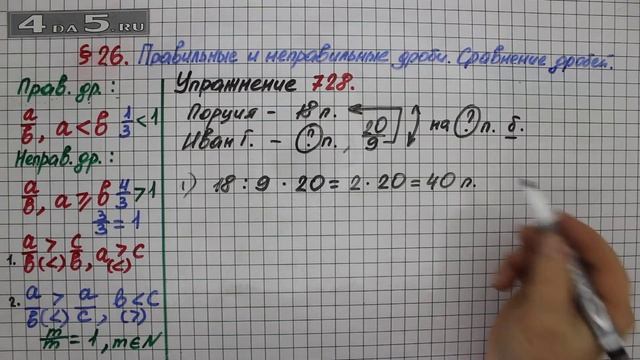 4DA5.RU
§ 26. Правильные и неправильные дроби. Сравнение дробей.
Прав. др. :
a/b, a < b 1/3 < 1
Неправ. др. :
a/b, a ⩾ b 4/3 > 1
3/3 = 1
1. a/b >(<) c/b, a >(<) c
2. a/b >(<) a/c, b < c (>)
m/m = 1, m∈N
Упражнение 728.
Порция – 18 п.
Иван Г. – ? п., 20/9 на ? п. б.
1) 18 : 9 · 20 = 2 · 20 = 40 п.